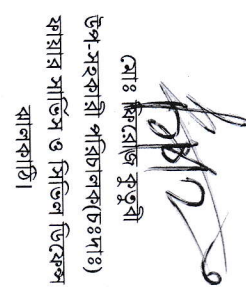 মোঃ ফিরোজ কুতুবী
উপ-সহকারী পরিচালক(চঃদাঃ)
ফায়ার সার্ভিস ও সিভিল ডিফেন্স
ঝালকাঠি।